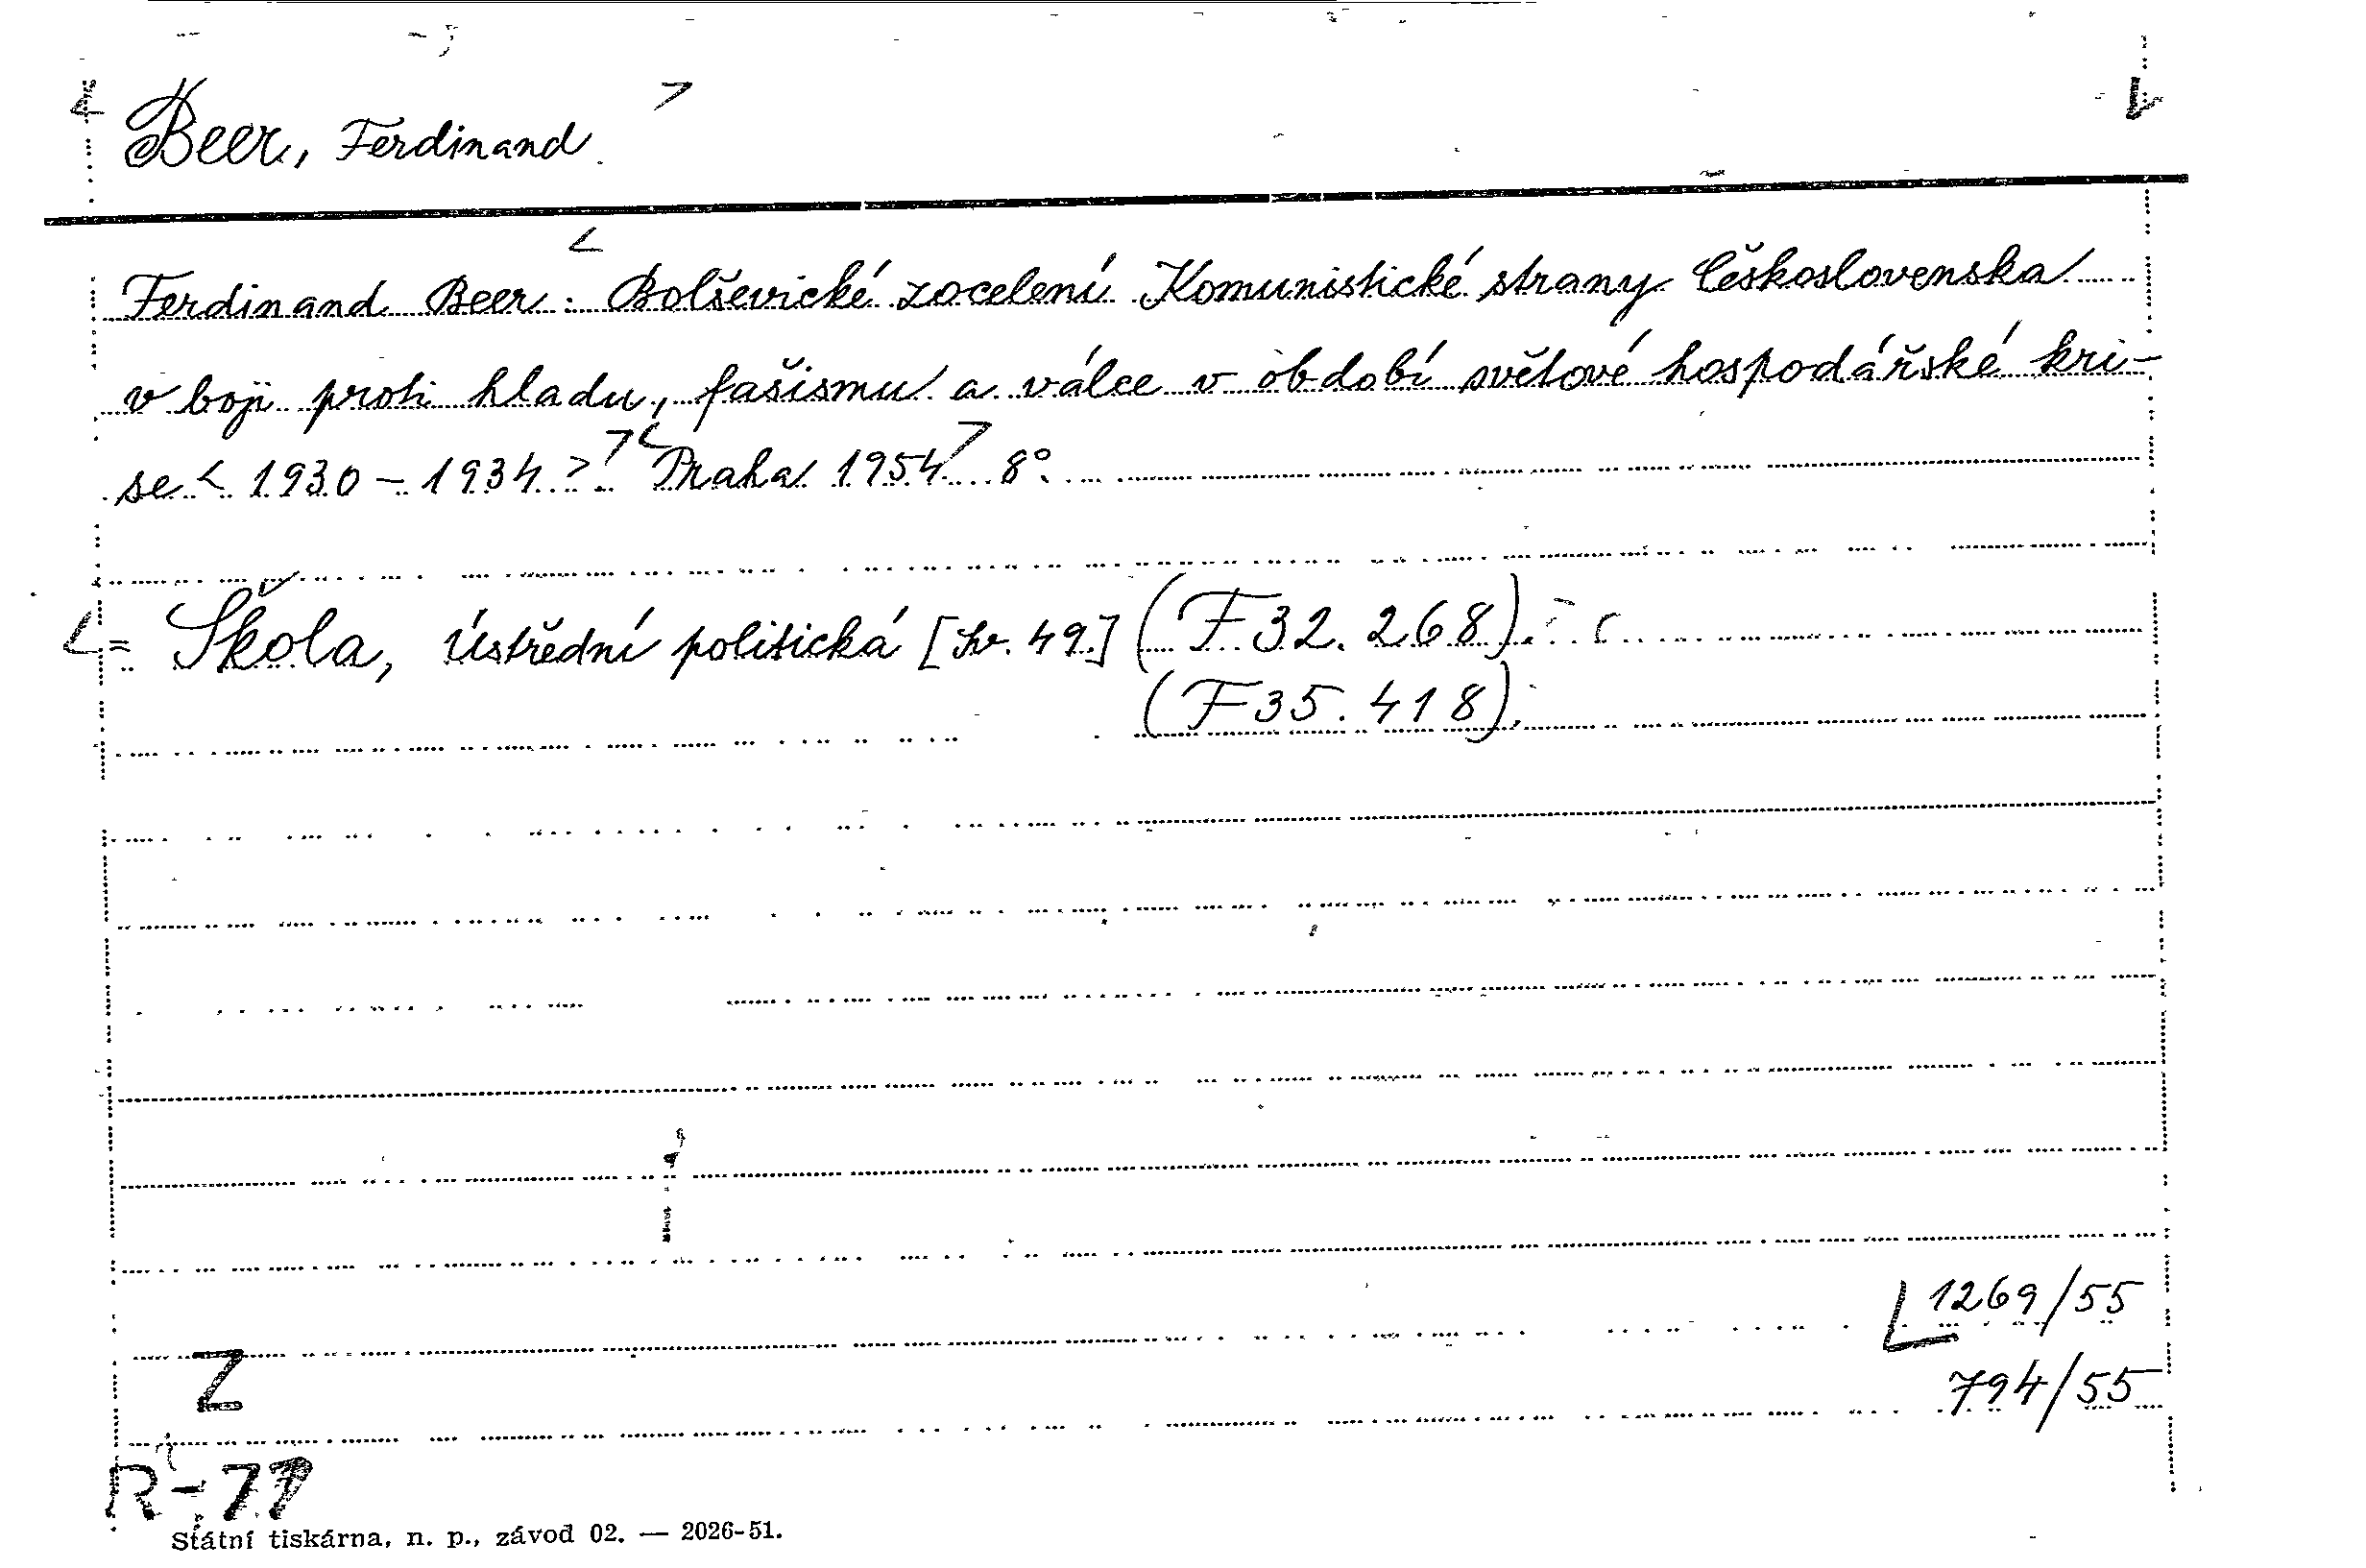 Beer, Ferdinand
Ferdinand Beer: Bolševické zocelení Komunistické strany Československa
v boji proti hladu, fašismu a válce v období světové hospodářské kri-
se < 1930 - 1934 > Praha 1954 8°.
= Škola, Ústřední politická [Sv. 49] (F 32.268).
(F 35.418).
1269/55
794/55
Z
Státní tiskárna, n. p., závod 02. — 2026-51.